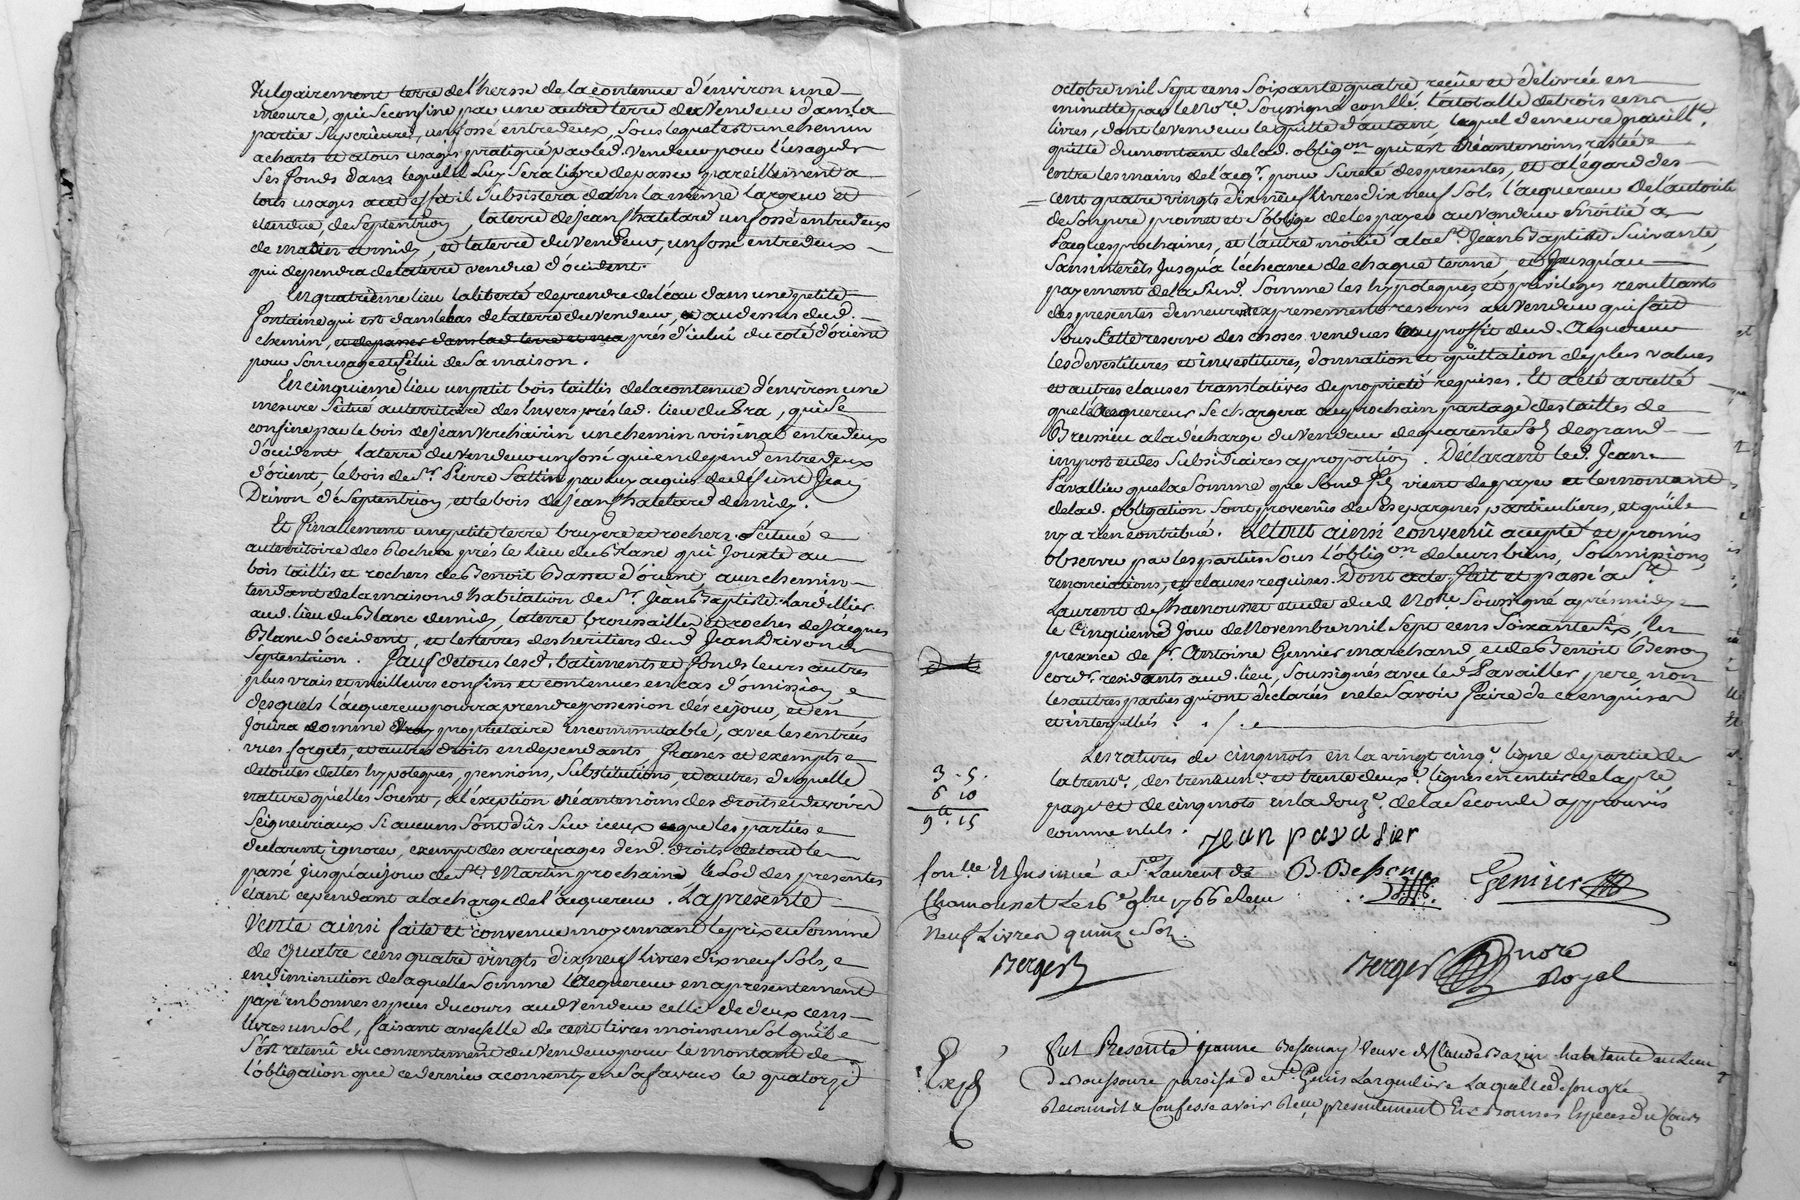 vulgairement terre del'herse de la contenue d'environ une
mesure, qui se confine par une autre terre du vendeur dans la
partie superieure, un fossé entredeux, sous lequel est un chemin
a charts et a tous usages pratiqué par led. vendeur pour l'usage de
ses fonds dans lequel il luy sera libre de passer pareillement a
tous usages a cet effet il subsistera dans la même largeur et
etendue, de septentrion, la terre de Jean Chatelard un fossé entredeux
de matin et midy, et la terre du vendeur, un fossé entredeux
qui dependra de la terre vendue d'occident.
En quatrieme lieu la liberté de prendre de l'eau dans une petite
fontaine qui est dans le bas de la terre du vendeur, au dessus dud.
chemin, et de passer dans lad. terre et près d'icelui du coté d'orient
pour son usage et celui de sa maison.
En cinquieme lieu un petit bois taillis de la contenue d'environ une
mesure scitué au territoire des Envers près led. lieu du Bra, qui se
confine par le bois de Jean Verchairin un chemin voisinal entredeux
d'occident la terre du vendeur un fossé qui en depend entredeux
d'orient, le bois de Sr. Pierre Sattin par luy acquis de deffunt Jean
Drivon de septentrion, et le bois de Jean Chatelard de midy.
Et finallement une petite terre bruyere et rochers scitué
au territoire des Rochers près le lieu du Blanc qui jouxte au
bois taillis et rochers de Benoit Basset d'orient, au chemin
tendant de la maison d'habitation de Sr. Jean Baptiste Lardellier
aud. lieu du Blanc de midy, la terre brousailles et roches de Jacques
Blanc d'occident, et les terres des heritiers dud. Jean Drivon de
septentrion. Sauf de tous lesd. batiments et fonds leurs autres
plus vrais et meilleurs confins et contenues en cas d'omission
desquels l'acquereur pourra prendre possession dès ce jour, et en
jouira comme vray proprietaire incommutable, avec les entrées
vues forgets, et autres droits en dependants francs et exempts
de toutes dettes hypoteques, pensions, substitutions, et autres de quelle
nature qu'elles soient, a l'exeption néantmoins des droits et devoirs
seigneuriaux si aucuns sont dûs sur iceux ce que les parties
declarent ignorer, exempt des arrérages desd. droits de tout le
passé jusqu'aujour de St. Martin prochain le lod des presentes
etant cependant a la charge de l'acquereur. La presente
vente ainsi faite et convenue moyennant le prix et somme
de quatre cens quatre vingts dix neuf livres dix neuf sols,
en diminution de laquelle somme l'acquereur en a presentement
payé en bonnes especes du cours aud. vendeur celle de deux cens
livres un sol, faisant avec elle de cent livres moins un sol qu'il
s'est retenû du consentement du vendeur pour le montant de
l'obligation que ce dernier a consenty en sa faveur le quatorze
octobre mil sept cens soixante quatre reçûe et delivrée en
minutte par le Nore. soussigné conllé, la totalle de trois cens
livres, dont le vendeur le quitte d'autant lequel demeure pareillt.
quitte du montant de lad. obligon. qui est néantmoins restée
entre les mains de l'acqr. pour sureté des presentes, et a l'égard des
cent quatre vingts dix neuf livres dix neuf sols l'acquereur de l'autorité
de son pere promet et s'oblige de les payer au vendeur moitié a
Paques prochaines, et l'autre moitié a la St. Jean Baptiste suivante,
sans interêts jusqu'a l'écheance de chaque terme, et jusqu'au
payement de lasusd. somme les hypoteques et privileges resultants
des presentes demeurent expressement reservés au vendeur qui fait
sous cette reserve des choses vendues au proffit dud. acquereur
les devestitures et investitures, donnation et quittation de plus values
et autres clauses translatives de proprieté requises. Et a été arretté
que l'acquereur se chargera au prochain partage des tailles de
Brussieu a la décharge du vendeur de quarente sols de grand
impost et des subsidiaires a proportion. Déclarant led. Jean
Pavallier que la somme que sond. fils vient de payer et le montant
de lad. obligation sont provenûs de ses epargnes particulieres, et qu'il
n'y a rien contribué. Le tout ainsi convenû accepté et promis
observer par les parties sous l'obligon. de leurs biens, soumissions,
renonciations, et clauses requises. Dont acte. Fait et passé a St.
Laurent de Chamousset etude dud. Nore. soussigné après midy
le cinquieme jour de Novembre mil sept cens soixante six, en
presence de Sr. Antoine Genier marchand et de Benoit Besson
cordr. residants aud. lieu, soussignés avec led. Pavallier pere, non
les autres parties qui ont déclarées ne le savoir faire de ce enquises
et interpellés. ./.
Les ratures de cinq mots en la vingt cinqe. ligne de partie de
la trente, des trente une. et trente deuxe. lignes en entier de la pre.
page et de cinq mots en la douze. de la seconde approuvés
comme nuls.
3. 5.
6 10
9tt. 15
Jean pavalier
B. Besson
Genier
Conlle et Insinué a St. Laurent de
Chamousset le 16e 9bre 1766 Reçu
Neuf Livres quinze sols.
Berger
Berger nore Royal
Exp
Fut Presente jeanne Bessenay veuve de Claude Bazin habitante au lieu
de Soussoure paroisse de St. Genis Largentiere Laquelle de son gré
Reconnoit & Confesse avoir Reçu presentement En Bonnes Especes du Cours